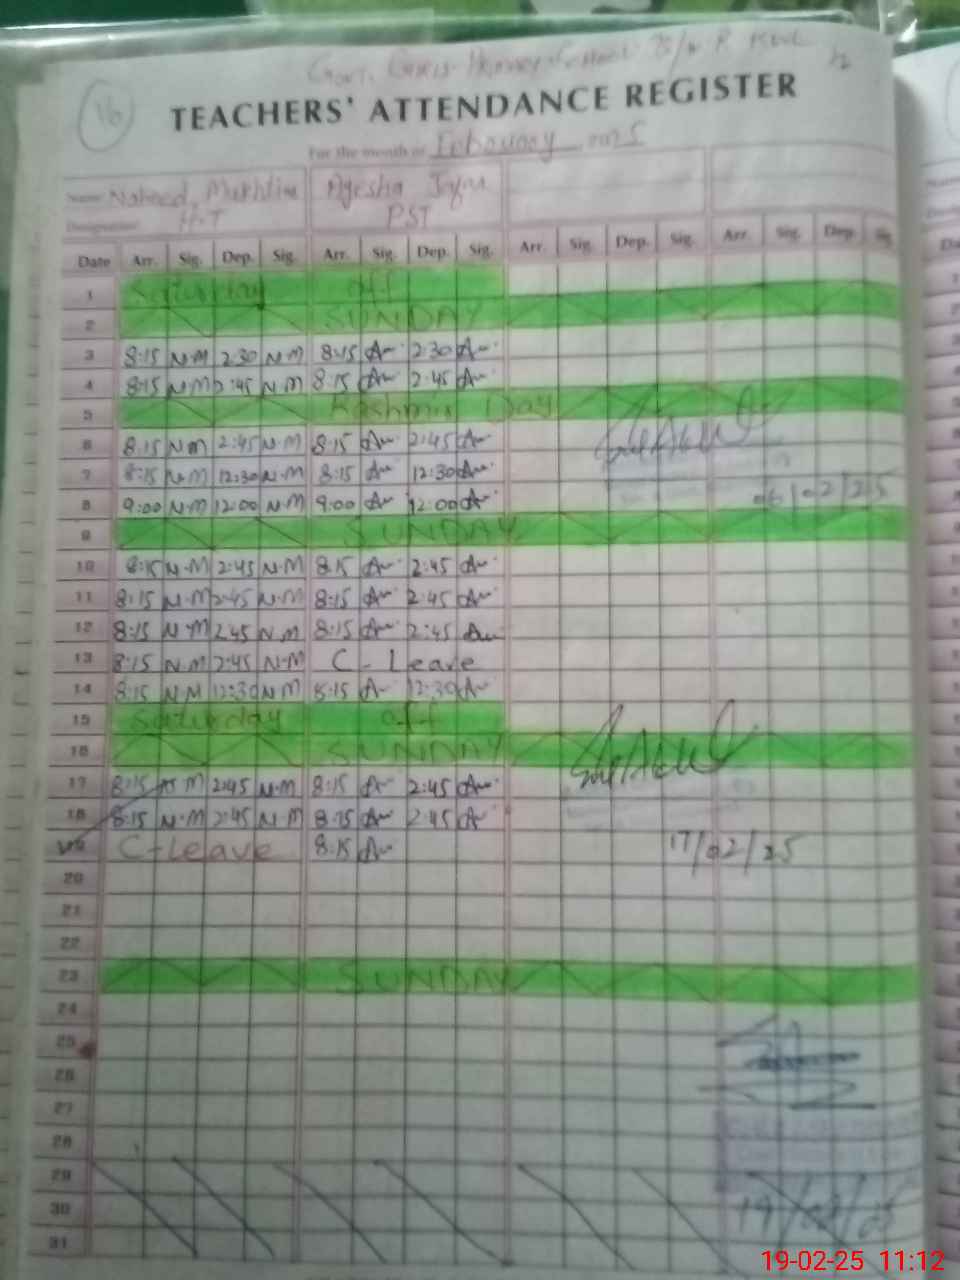 16
Govt. Girls Primary School 75/ P
TEACHERS' ATTENDANCE REGISTER
For the month of February 2025
Name Naheed Mukhtia Ayesha
Designation H.T PST
Date Arr. Sig. Dep. Sig. Arr. Sig. Dep. Sig. Arr. Sig. Dep. Sig. Arr. Sig. Dep. Sig.
1 Saturday off
2 SUNDAY
3 8:15 N.M 2:30 N.M 8:15 2:30
4 8:15 N.M 2:45 N.M 8:15 2:45
5 Kashmir Day
6 8:15 N.M 2:45 N.M 8:15 2:45
7 8:15 N.M 12:30 N.M 8:15 12:30
8 9:00 N.M 12:00 N.M 9:00 12:00 06/02/25
9 SUNDAY
10 8:15 N.M 2:45 N.M 8:15 2:45
11 8:15 N.M 2:45 N.M 8:15 2:45
12 8:15 N.M 2:45 N.M 8:15 2:45
13 8:15 N.M 2:45 N.M C-Leave
14 8:15 N.M 12:30 N.M 8:15 12:30
15 Saturday off
16 SUNDAY
17 8:15 N.M 2:45 N.M 8:15 2:45
18 8:15 N.M 2:45 N.M 8:15 2:45
19 C-Leave 8:15 17/02/25
20
21
22
23 SUNDAY
24
25
26
27
28
29
30 19/02/25
31
19-02-25 11:12